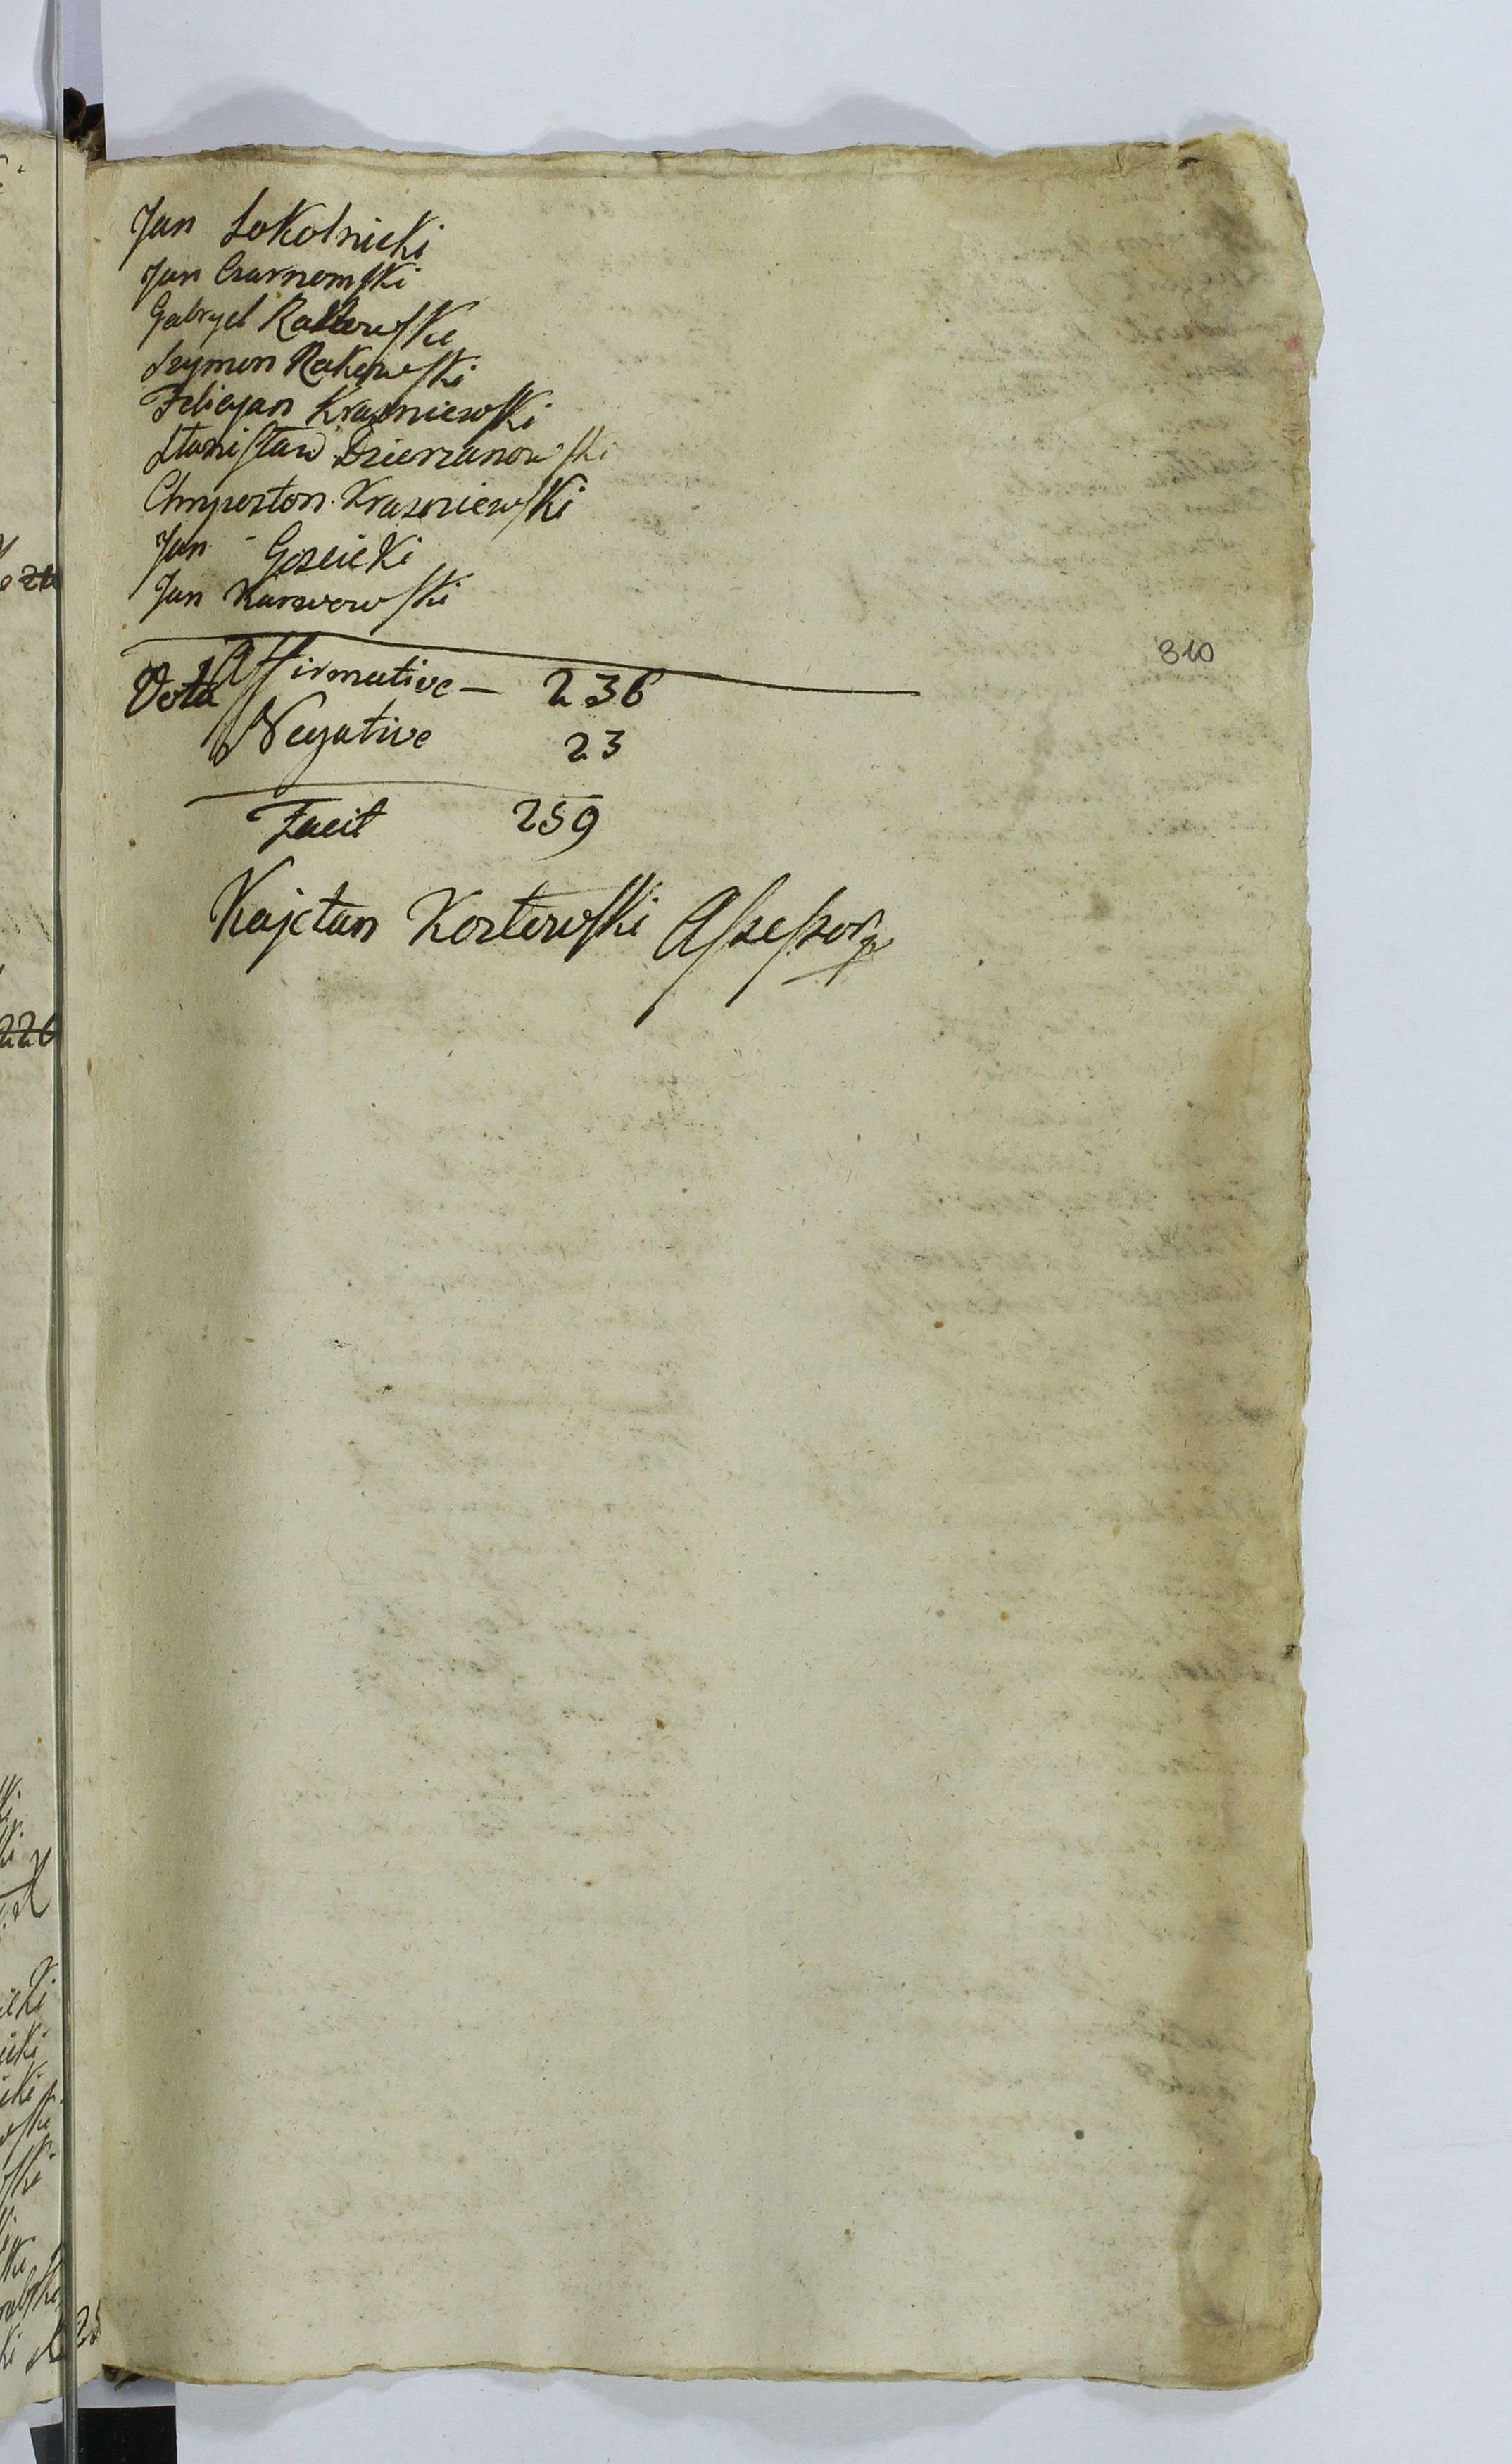 Jan Sokolnicki
Jan Czarnomski
Gabryel Rakowski
Szymon Rakowski
Felicyan Krasniewski
Stanisław Dzierzanowski
Krasniewski
Jan Goscicki
Jan Karwowski
310
Vota Affirmative — 236
Negative 23
Facit 259
Kajetan Kozłowski Assessor